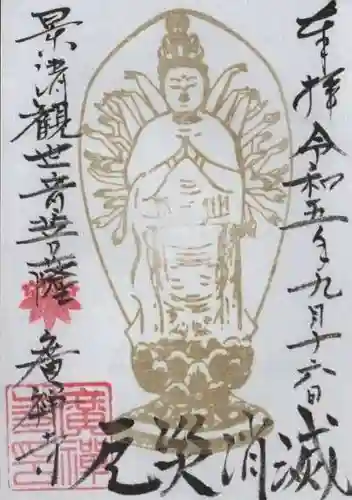 奉拝 令和五年九月十六日
景清觀世音菩薩 廣禅寺
厄災消滅